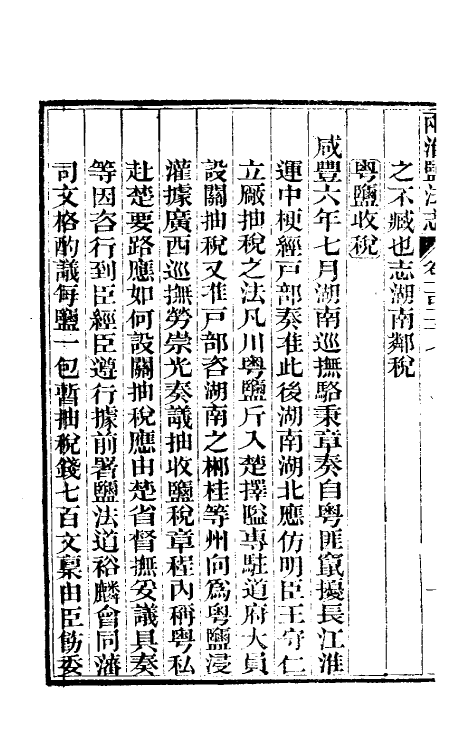 兩淮鹽法志 卷一百二十七
之不臧也志湖南鄰稅
粵鹽收稅
咸豐六年七月湖南巡撫駱秉章奏自粵匪竄擾長江淮
運中梗經戸部奏准此後湖南湖北應仿明臣王守仁
立厰抽稅之法凡川粵鹽斤入楚擇隘專駐道府大員
設關抽稅又准戸部咨湖南之郴桂等州向爲粵鹽浸
灌據廣西巡撫勞崇光奏議抽收鹽稅章程內稱粵私
赴楚要路應如何設關抽稅應由楚省督撫妥議具奏
等因咨行到臣經臣遵行據前署鹽法道裕麟會同藩
司文格酌議每鹽一包暫抽稅錢七百文稟由臣飭委